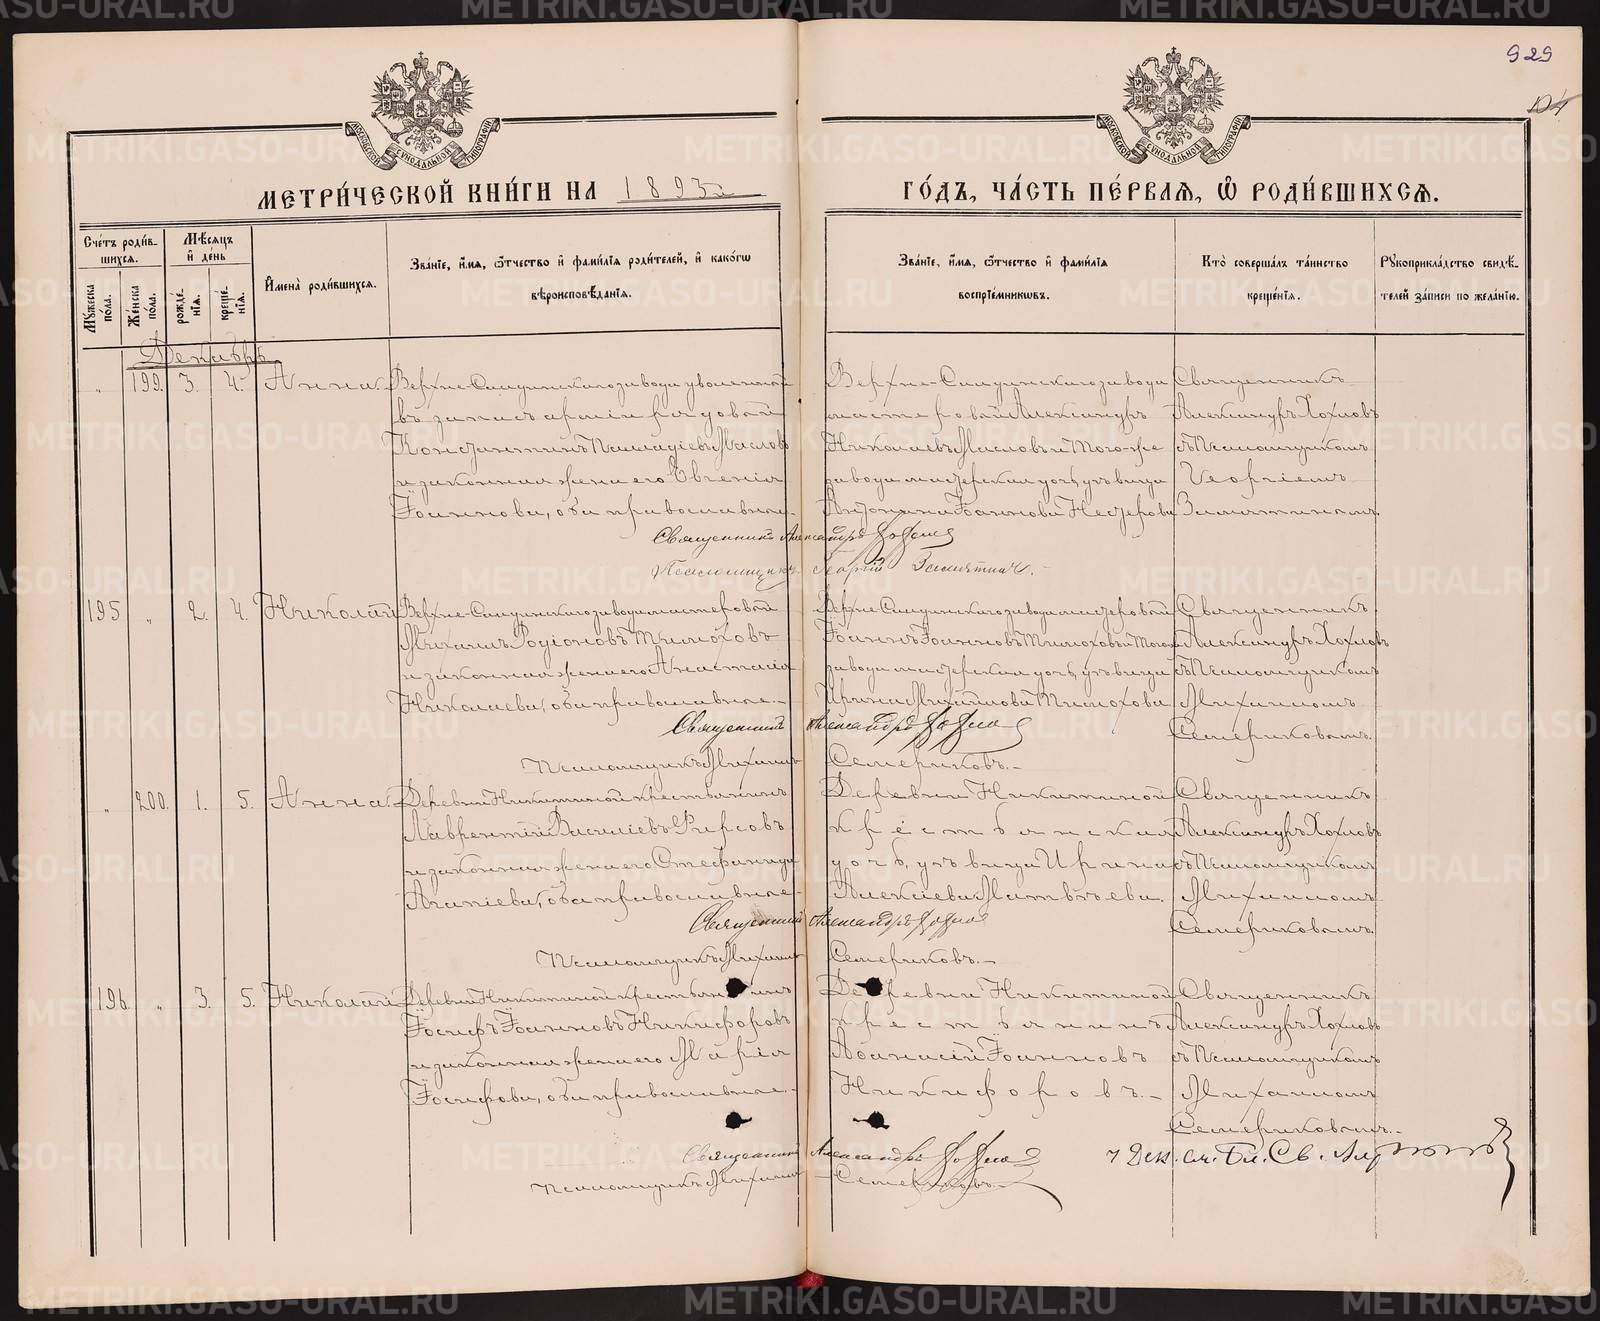 929
104
МОСКОВСКОЙ СѴНОДАЛЬНОЙ ТИПОГРАФІИ
МОСКОВСКОЙ СѴНОДАЛЬНОЙ ТИПОГРАФІИ
МЕТРИ́ЧЕСКОЙ КНИ́ГИ НА 1893й
ГО́ДЪ, ЧА́СТЬ ПЕ́РВАЯ, Ѽ РОДИ́ВШИХСЯ.
Сче́тъ роди́вшихся.
Мꙋ́жеска по́ла.
Же́нска по́ла.
Мѣ́сяцъ и҆ де́нь
рожде́нїя.
креще́нїя.
И҆мена̀ роди́вшихся.
Зва́нїе, и҆́мя, ѻ҆́тчество и҆ фами́лїя роди́телей, и҆ како́гѡ вѣроисповѣ́данїя.
Зва́нїе, и҆́мя, ѻ҆́тчество и҆ фами́лїя воспрїе́мникѡвъ.
Кто̀ соверша́лъ та́инство креще́нїя.
Рꙋкоприкла́дство свидѣ́телей за́писи по жела́нїю.
Декабрь
" 199. 3. 4. Анна
Верхне-Салдинскаго завода уволенный
въ запасъ арміи рядовой
Константинъ Палладіевъ Масловъ
и законная жена его Евгенія
Іоаннова, оба православные.
Верхне-Салдинскаго завода
мастеровой Александръ
Николаевъ Масловъ и того-же
завода мастерская дочь, дѣвица
Антонина Іоаннова Нестерова
Священникъ
Александръ Хохловъ
съ Псаломщикомъ
Георгіемъ
Замятинымъ.
Священникъ Александръ Хохловъ
Псаломщикъ Георгій Замятинъ.
195 " 2. 4. Николай
Верхне-Салдинскаго завода мастеровой
Михаилъ Родіоновъ Тимоховъ
и законная жена его Анастасія
Николаева, оба православные.
Верхне-Салдинскаго завода мастеровой
Іоаннъ Іоанновъ Тимоховъ и того
завода мастерская дочь, дѣвица
Ирина Михайлова Тимохова
Священникъ
Александръ Хохловъ
съ Псаломщикомъ
Михаиломъ
Семериковымъ.
Священникъ Александръ Хохловъ
Псаломщикъ Михаилъ Семериковъ.
" 200. 1. 5. Анна
Деревни Никитиной крестьянинъ
Лаврентій Василіевъ Фирсовъ
и законная жена его Стефанида
Агапіева, оба православные.
Деревни Никитиной
крестьянская
дочь, дѣвица Ирина
Алексіева Матвѣева.
Священникъ
Александръ Хохловъ
съ Псаломщикомъ
Михаиломъ
Семериковымъ.
Священникъ Александръ Хохловъ
Псаломщикъ Михаилъ Семериковъ.
196. " 3. 5. Николай
Деревни Никитиной крестьянинъ
Іосифъ Іоанновъ Никифоровъ
и законная жена его Марія
Іосифова, оба православные.
Деревни Никитиной
крестьянинъ
Афанасій Іоанновъ
Никифоровъ.
Священникъ
Александръ Хохловъ
съ Псаломщикомъ
Михаиломъ
Семериковымъ.
Священникъ Александръ Хохловъ
Псаломщикъ Михаилъ Семериковъ.
7 Дек. см. Бл. Св.
METRIKI.GASO-URAL.RU